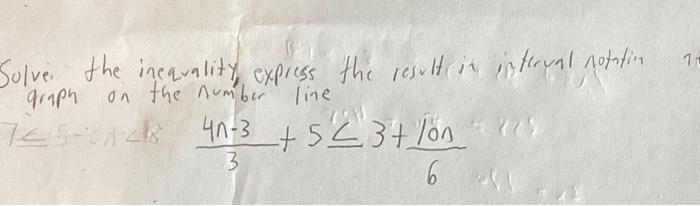 Solve the inequality, express the result in interval notatin
graph on the number line
7≤5-
4n-3/3 + 5 ≤ 3 + 10n/6